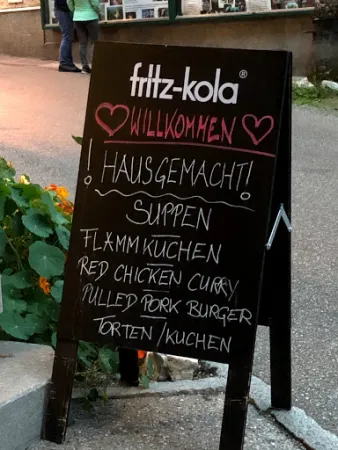 fritz-kola®
♡ WILLKOMMEN ♡
! HAUSGEMACHT!
SUPPEN
FLAMMKUCHEN
RED CHICKEN CURRY
PULLED PORK BURGER
TORTEN/KUCHEN